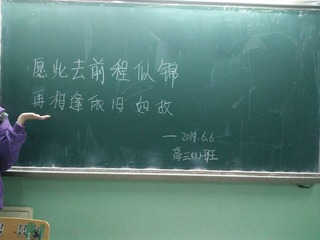 愿此去前程似锦
再相逢依旧如故
—2019.6.6
高三(1)班